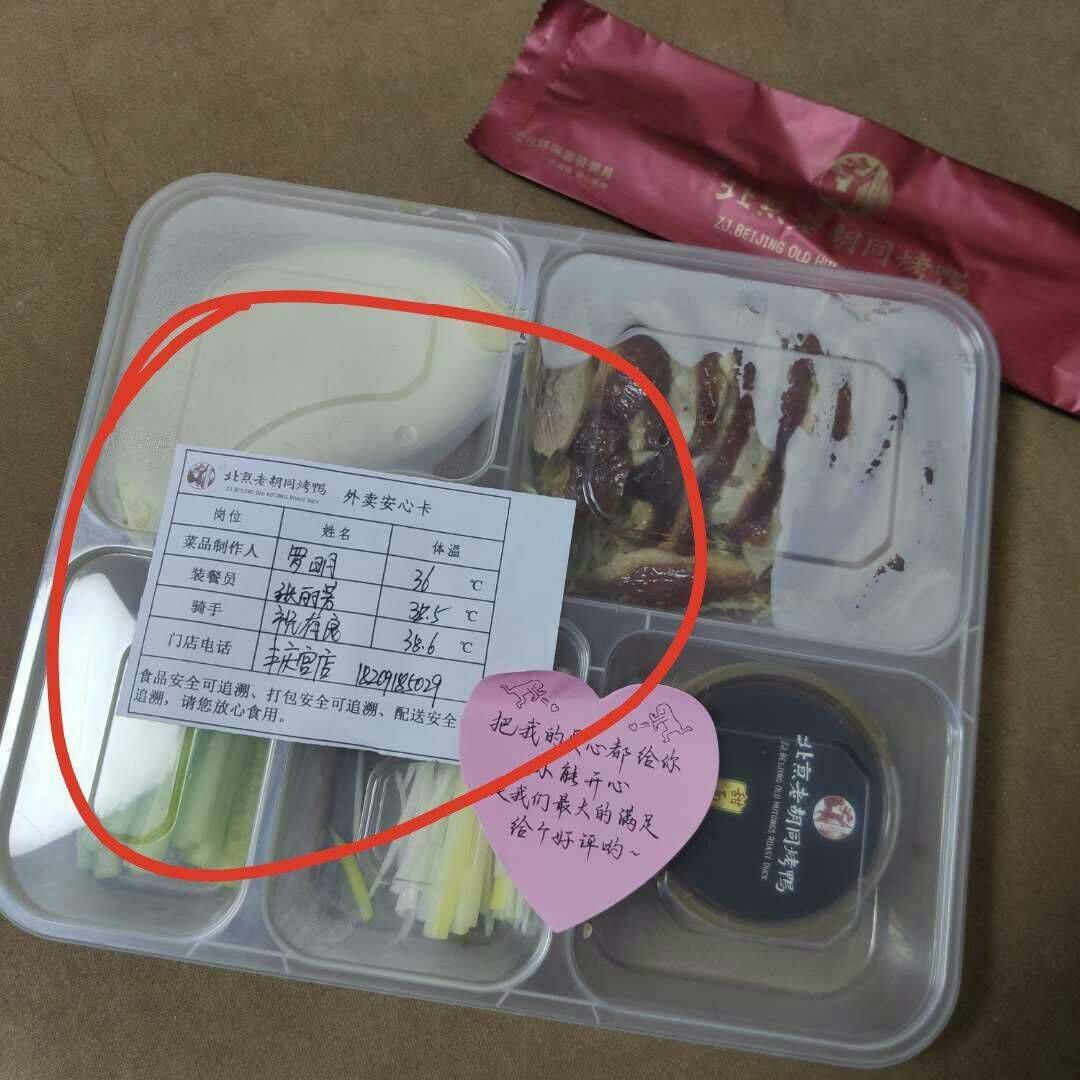 北京老胡同烤鸭
ZJ.BEIJING OLD HU
北京老胡同烤鸭 外卖安心卡
ZJ.BEIJING OLD HUTONGS ROAST DUCK
岗位 姓名 体温
菜品制作人 罗明 36 ℃
装餐员 张丽芳 38.5 ℃
骑手 祝有良 38.6 ℃
门店电话 丰庆宫店 18209185029
食品安全可追溯、打包安全可追溯、配送安全
追溯，请您放心食用。
把我的 心都给你
能开心
我们最大的满足
给个好评哟~
北京老胡同烤鸭
ZJ.BEIJING OLD HUTONGS ROAST DUCK
甜